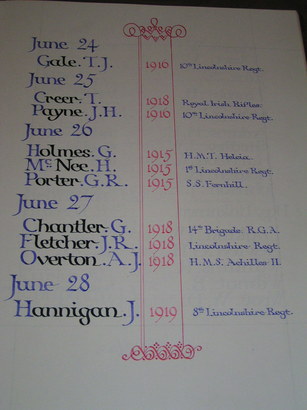 June 24
Gale. T.J. 1916 10th Lincolnshire Regt.
June 25
Creer. T. 1918 Royal Irish Rifles.
Payne. J.H. 1916 10th Lincolnshire Regt.
June 26
Holmes. G. 1915 H.M.T.
McNee. H. 1915 1st Lincolnshire Regt.
Porter. G.R. 1915 S.S.
June 27
Chantler. G. 1918 14th Brigade. R.G.A.
Fletcher. J.R. 1918 Lincolnshire Regt.
Overton. A.J. 1918 H.M.S. Achilles II.
June 28
Hannigan. J. 1919 8th Lincolnshire Regt.